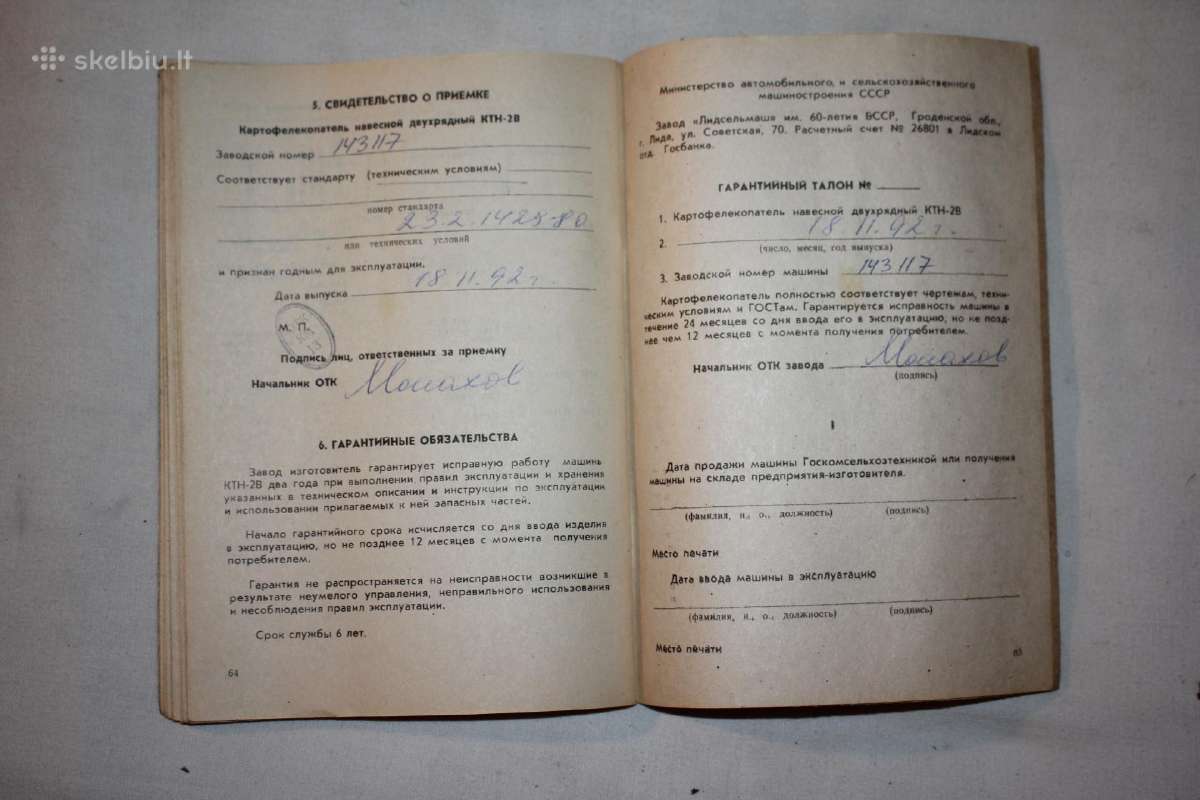 skelbiu.lt
5. СВИДЕТЕЛЬСТВО О ПРИЕМКЕ
Картофелекопатель навесной двухрядный КТН-2В
Заводской номер 143117
Соответствует стандарту (техническим условиям)
номер стандарта
23.2.1425-80
или технических условий
и признан годным для эксплуатации.
Дата выпуска 18.11.92г.
М. П.
Подпись лиц, ответственных за приемку
Начальник ОТК Монахов
6. ГАРАНТИЙНЫЕ ОБЯЗАТЕЛЬСТВА
Завод изготовитель гарантирует исправную работу машины
КТН-2В два года при выполнении правил эксплуатации и хранения
указанных в техническом описании и инструкции по эксплуатации
и использовании прилагаемых к ней запасных частей.
Начало гарантийного срока исчисляется со дня ввода изделия
в эксплуатацию, но не позднее 12 месяцев с момента получения
потребителем.
Гарантия не распространяется на неисправности возникшие в
результате неумелого управления, неправильного использования
и несоблюдения правил эксплуатации.
Срок службы 6 лет.
64
Министерство автомобильного, и сельскохозяйственного
машиностроения СССР
Завод «Лидсельмаш» им. 60-летия БССР, Гроденской обл.,
г. Лида, ул. Советская, 70. Расчетный счет № 26801 в Лидском
отд. Госбанка.
ГАРАНТИЙНЫЙ ТАЛОН №
1. Картофелекопатель навесной двухрядный КТН-2В
2. 18.11.92г.
(число, месяц, год выпуска)
3. Заводской номер машины 143117
Картофелекопатель полностью соответствует чертежам, техни-
ческим условиям и ГОСТам. Гарантируется исправность машины в
течение 24 месяцев со дня ввода его в эксплуатацию, но не позд-
нее чем 12 месяцев с момента получения потребителем.
Начальник ОТК завода Монахов
(подпись)
I
Дата продажи машины Госкомсельхозтехникой или получения
машины на складе предприятия-изготовителя.
(фамилия, и., о., должность) (подпись)
Место печати
Дата ввода машины в эксплуатацию
(фамилия, и., о., должность) (подпись)
Место печати
65